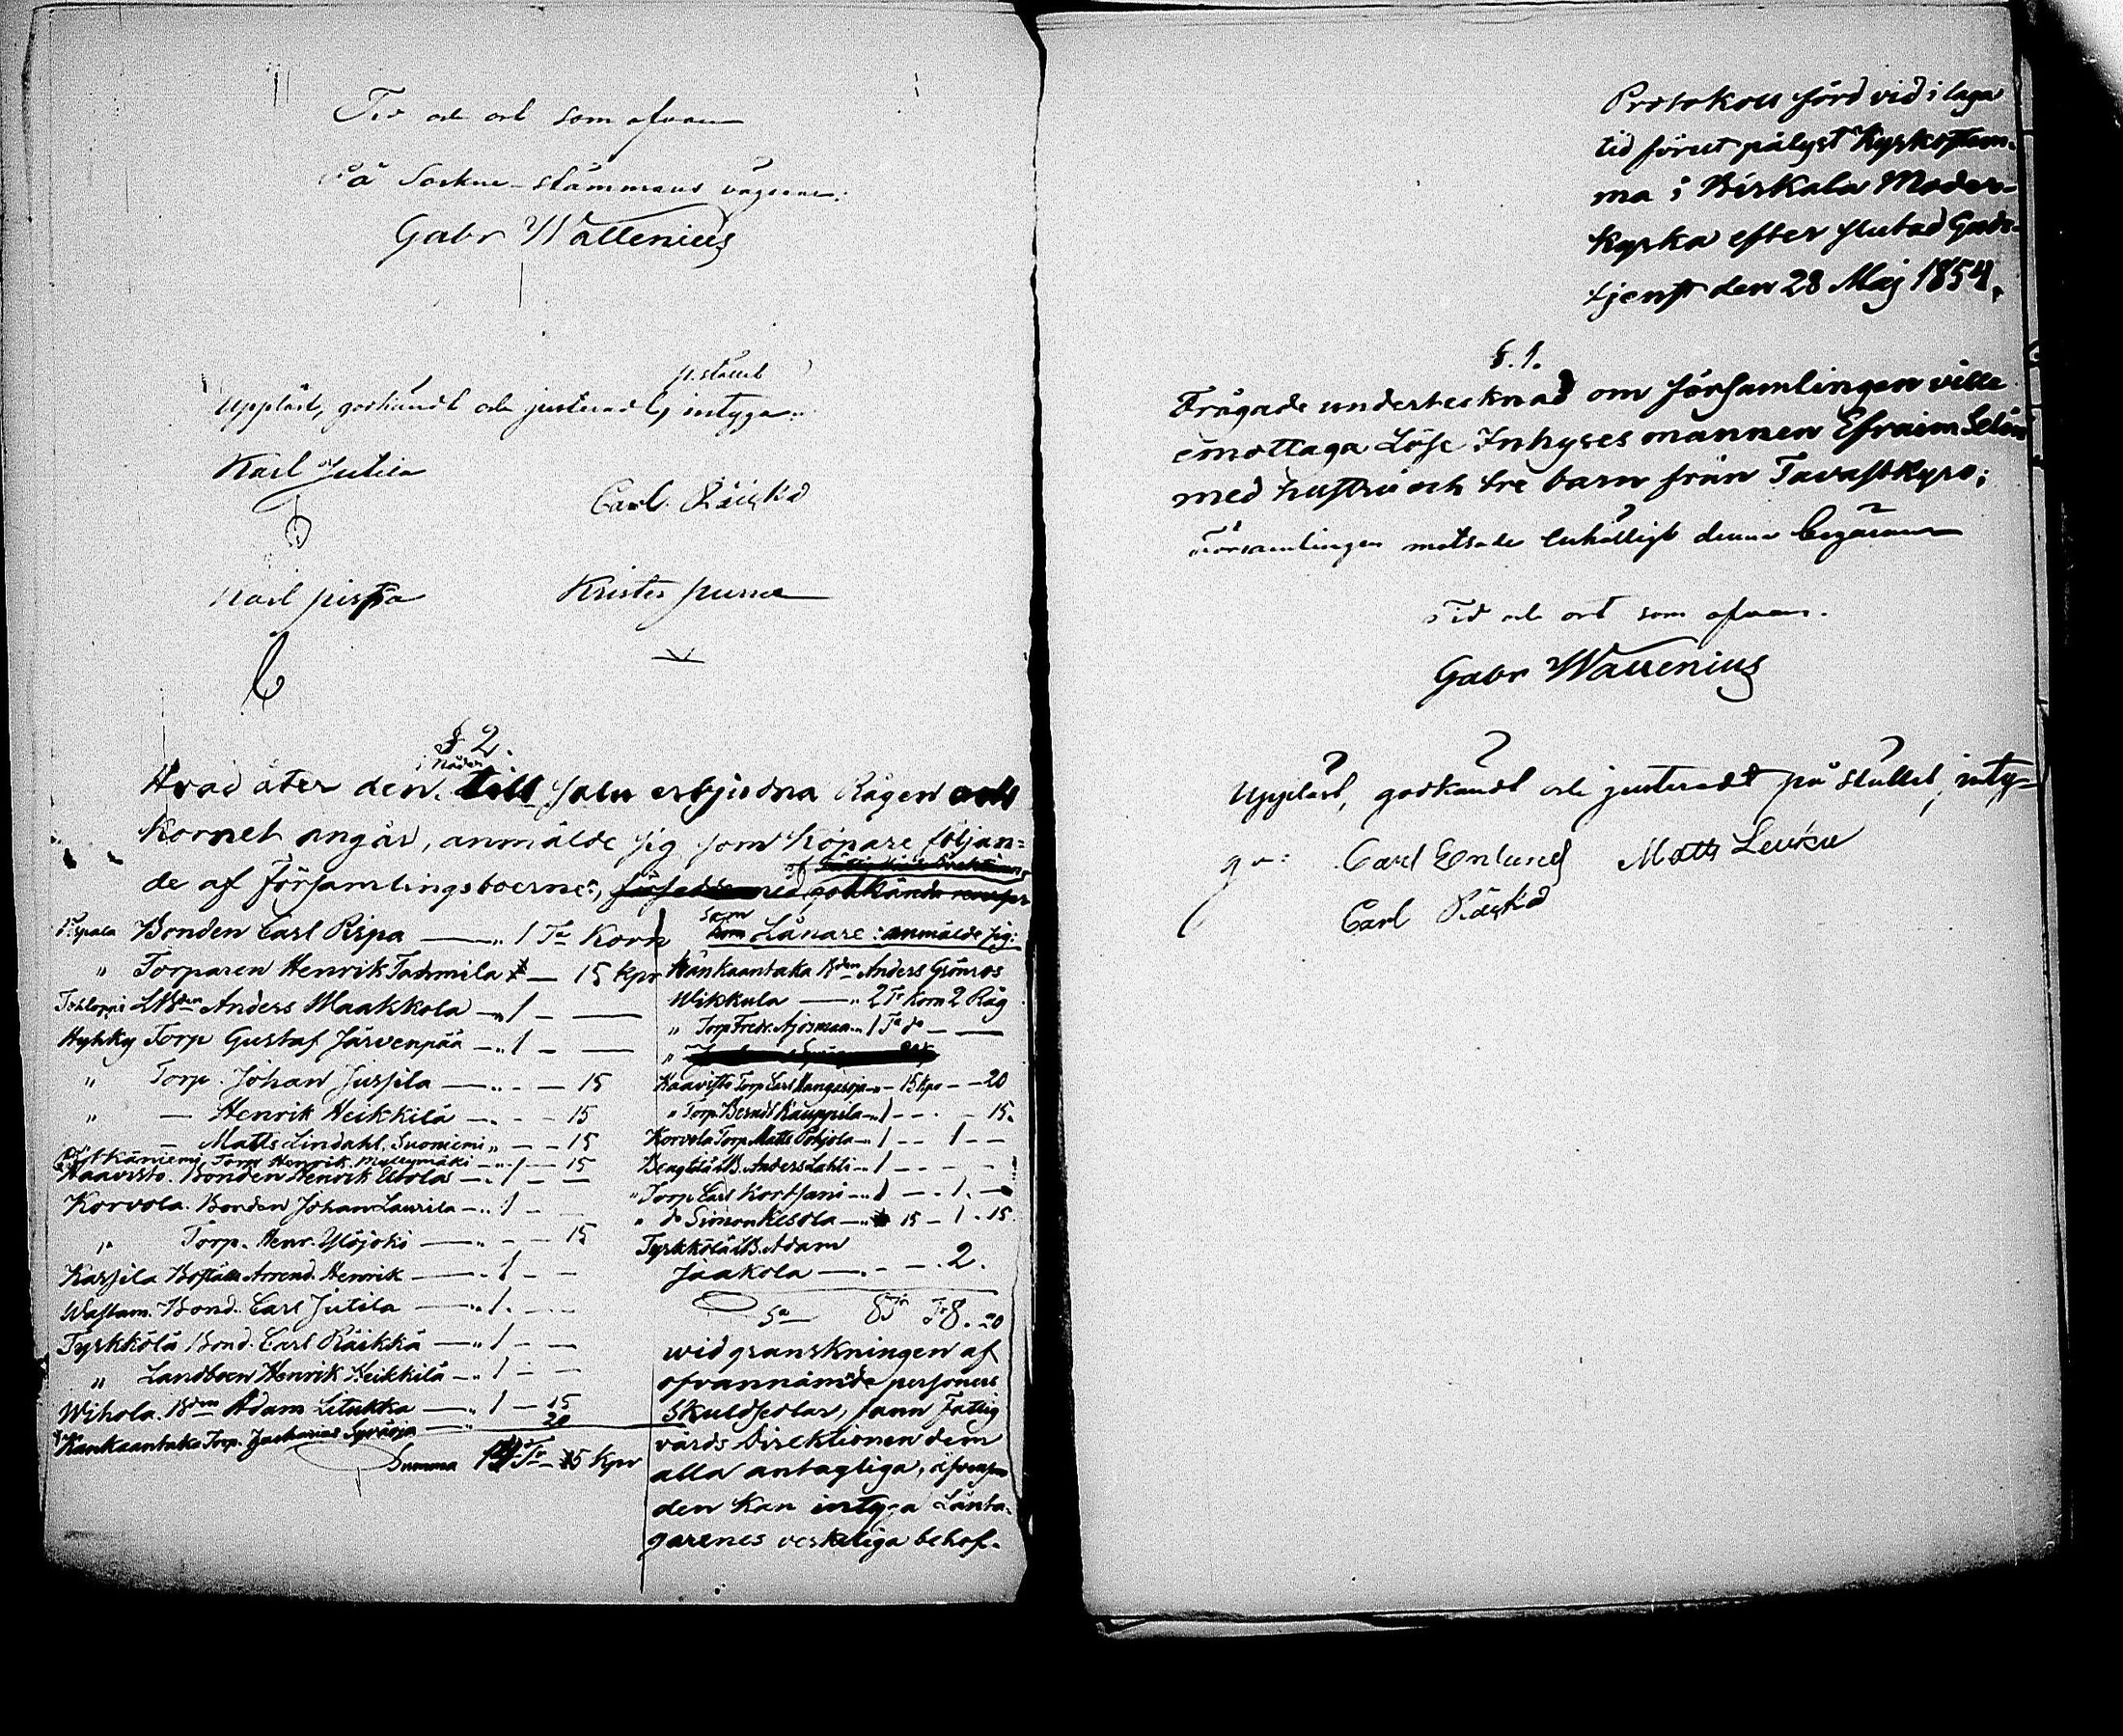 Tid och ort som ofvan
På Sockne-stämmans vägnar:
Gabr Wallenius
Uppläst, godkändt och justeradt, intyga
på stället
Karl Jutila
Carl Räickä
Karl pispa
Krister purra
§ 2.
Hvad åter den i Nåder till salu erbjudna Rågen och
Kornet angår, anmälde sig som Köpare följan=
de af församlingsboerne:
Pispala Bonden Carl Pispa —„ 1 Ta Korn
„ Torparen Henrik Tadmila — 15 kpr
Tohloppi LBden Anders Maakkola —„ 1 — —
Hyhky Torp Gustaf Järvenpää —„ 1 — —
„ Torp. Johan Jussila —„ — — 15
„ — Henrik Heikkilä —„ — — 15
— Matts Lindahl, Suoniemi „ — — 15
Torp Henrik Myllymäki —„ 1 — 15
Haavisto. Bonden Henrik Eerolas —„ 1 — —
Korvola. Bonden Johan Laurila —„ 1 — —
„ Torp. Henr. Ylöjoki —„ — — 15
Karsila Boställs Arrend. Henrik —„ 1 — —
Wastam. Bond. Carl Jutila —„ 1. — —
Tyrkkölä Bond. Carl Räikkä —„ 1 — —
„ Landboen Henrik Heikkilä —„ 1 — —
Wihola. Bden Adam Litukka —„ 1 — 15
Kankaantaka Torp. Zacharias Syväoja —„ 20
Summa Tr — 5 kpr
som Lånare: anmälde sig:
Kankaantaka Bden Anders Grönros
Wikkula —„ 2 Tr Korn 2 Råg
„ Torp Fredr. Ajosmaa „ 1 Ta do — —
Haavisto Torp Carl Hangasoja „ — 15 kpr — — 20
„ Torp. Berndt Kauppila —„ 1 — — . — 15.
Korvola Torp Matts Pohjola —„ 1 — — 1 — —
Bengtilä LB. Anders Lahti —„ 1 — — — —
„ Torp Carl Kortsani —„ 1 — . 1. —
„ do Simon Kesola —„ 15 — 1 . 15
Tyrkkölä LB. Adam
Jaakola —„ — — . 2.
Sa 8 Tr Tr 8. 20
wid granskningen af
ofvannämnde personers
Skuldsedlar, fann Fattig
vårds Direktionen dem
alla antagliga,
den kan intyga Lånta-
garenes verkeliga behof.
Protokoll förd vid i laga
tid förut pålyst Kyrkostäm-
ma i Birkala Moder-
kyrka efter slutad Guds-
tjenst den 28 Maj 1854.
§. 1.
Frågade undertecknad om församlingen ville
emottaga Löse Inhyses mannen Efraim Selin
med hustru och tre barn från Tavastkyro;
Församlingen motsade enhälligt denna begäran
Tid och ort som ofvan.
Gabr Wallenius
Uppläst, godkändt och justeradt på stället, inty=
ga: Carl Enlund Matts Leuku
Carl Räickä